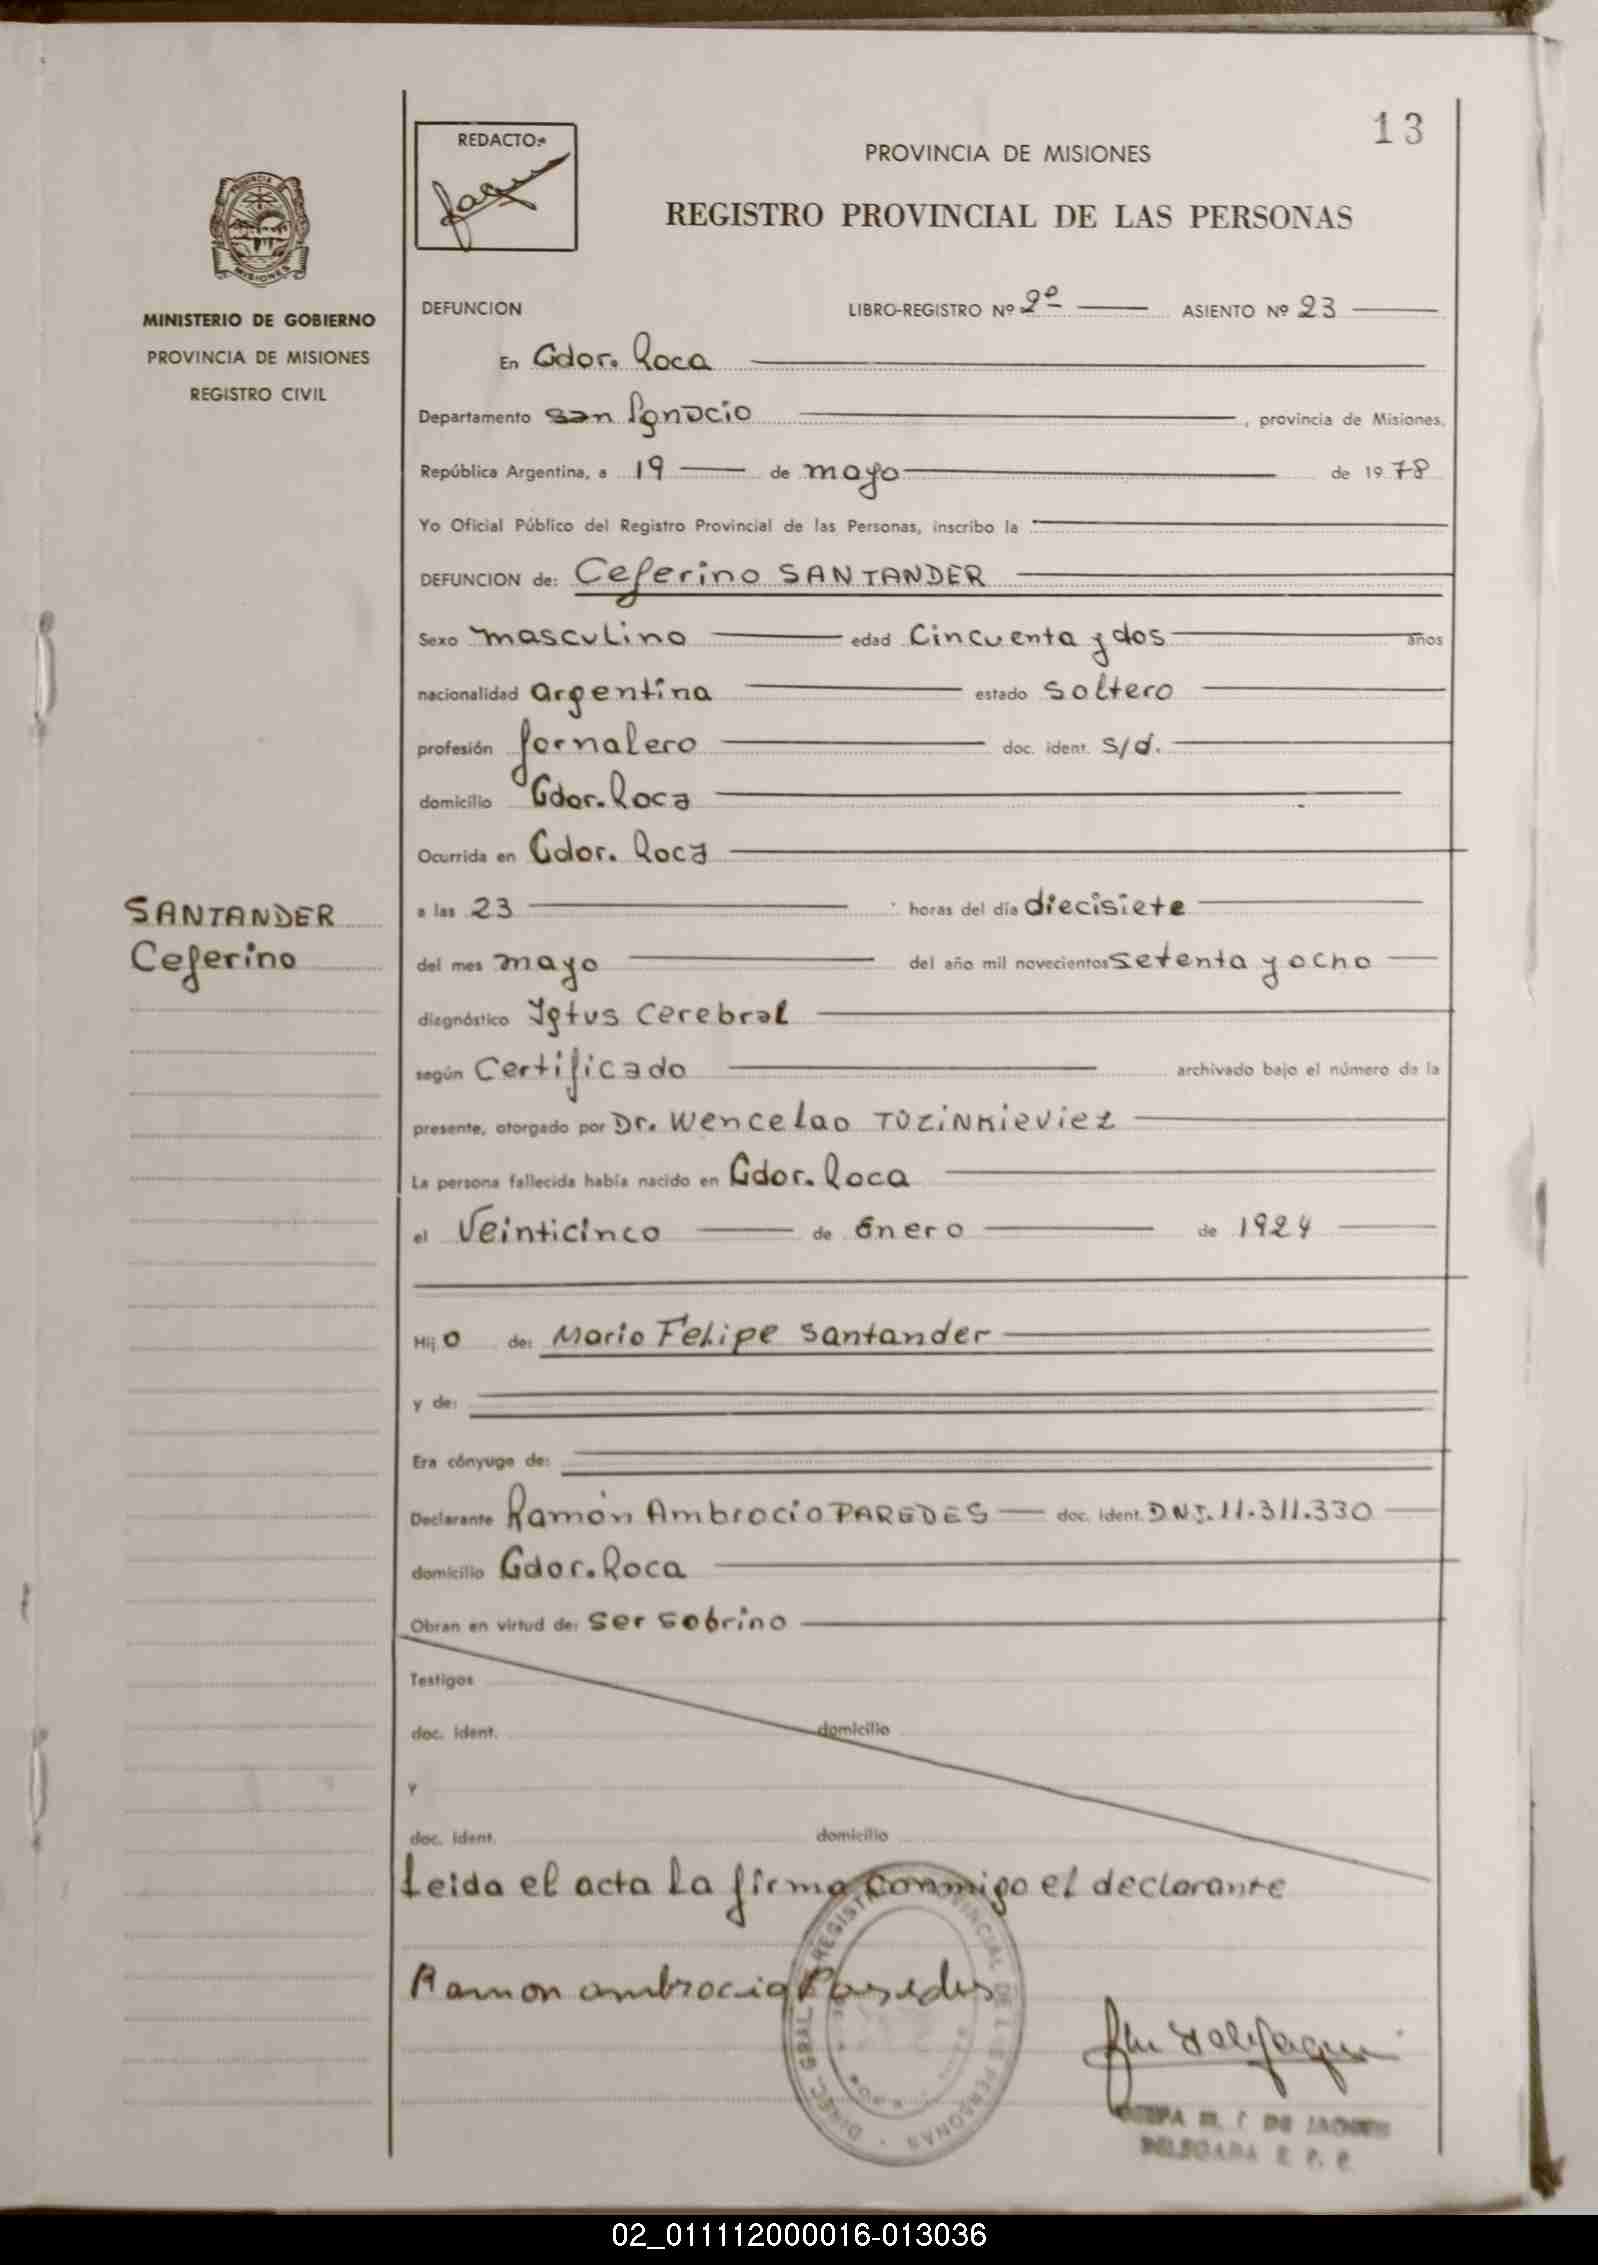 13
REDACTO:
PROVINCIA DE MISIONES
REGISTRO PROVINCIAL DE LAS PERSONAS
PROVINCIA DE
MISIONES
MINISTERIO DE GOBIERNO
PROVINCIA DE MISIONES
REGISTRO CIVIL
DEFUNCION LIBRO-REGISTRO Nº 2º ASIENTO Nº 23
En Gdor. Roca
Departamento San Ignacio , provincia de Misiones,
República Argentina, a 19 de mayo de 1978
Yo Oficial Público del Registro Provincial de las Personas, inscribo la
DEFUNCION de: Ceferino SANTANDER
Sexo masculino edad Cincuenta y dos años
nacionalidad argentina estado soltero
profesión Jornalero doc. ident. s/d.
domicilio Gdor. Roca
Ocurrida en Gdor. Roca
SANTANDER
Ceferino
a las 23 horas del día diecisiete
del mes mayo del año mil novecientos setenta y ocho
diagnóstico Igtus Cerebral
según Certificado archivado bajo el número de la
presente, otorgado por Dr. Wencelao TUZINKIEVIEZ
La persona fallecida había nacido en Gdor. Roca
el Veinticinco de Enero de 1924
Hijo de: Mario Felipe Santander
y de:
Era cónyuge de:
Declarante Ramón Ambrocio PAREDES doc. ident. DNI. 11.311.330
domicilio Gdor. Roca
Obran en virtud de: ser sobrino
Testigos
doc. ident. domicilio
y
doc. ident. domicilio
Leida el acta la firma conmigo el declarante
Ramon ambrocio Paredes
DIREC. GRAL. REGISTRO PROVINCIAL DE LAS PERSONAS
DE JAQUES
DELEGADA R. P. P.
02_011112000016-013036